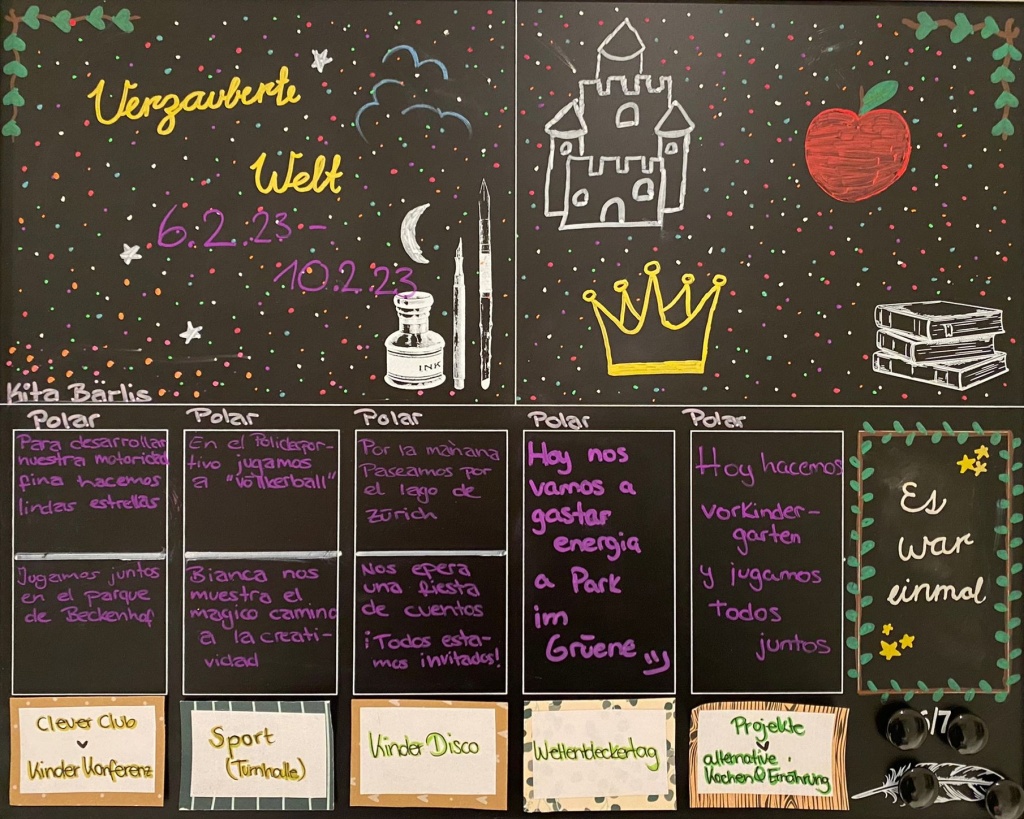 Verzauberte
Welt
6.2.23 -
10.2.23
INK
Kita Bärlis
Polar
Para desarrollar
nuestra motoridad
fina hacemos
lindas estrellas
Jugamos juntos
en el parque
de Beckenhof
Polar
En el Polidepor-
tivo jugamos
a "völkerball"
Bianca nos
muestra el
magico camino
a la creati-
vidad
Polar
Por la mañana
Paseamos por
el lago de
Zürich
Nos epera
una fiesta
de cuentos
¡Todos esta-
mos invitados!
Polar
Hoy nos
vamos a
gastar
energia
a Park
im
Grüene
Polar
Hoy hacemos
vorkinder-
garten
y jugamos
todos
juntos
Es
war
einmal
Clever Club
Kinder Konferenz
Sport
(Turnhalle)
Kinder Disco
Weltentdeckertag
Projekte
alternative
Kochen & Ernährung
/7